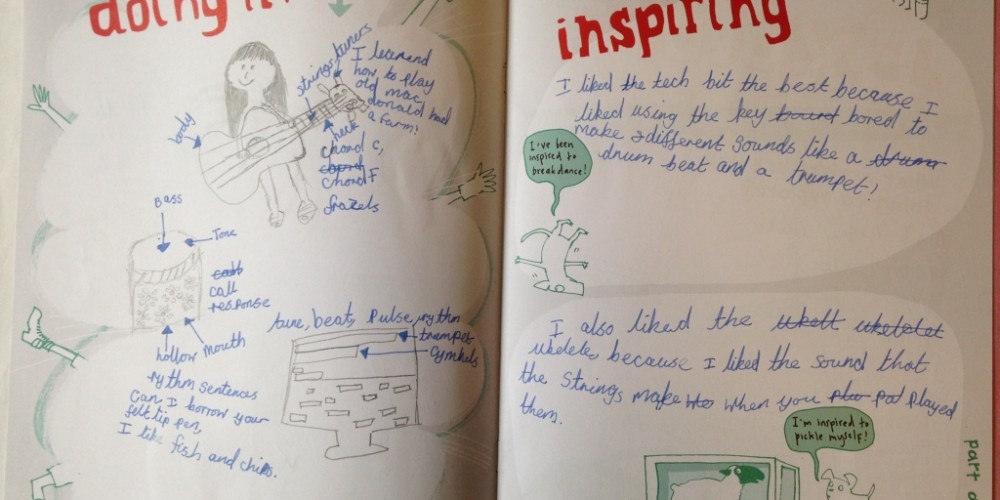 doing it
strings
tuners
I learnand
how to play
old mac
donald had
a farm!
body
neck
chord C,
chord F
frazels
BASS
Tone
call
response
hollow
mouth
rythm sentences
can I borrow your
felt tip pen,
I like fish and chips.
tune, beat, pulse, rythm
trumpet
cymbals
inspiring
I liked the tech bit the best because I
liked using the key bound bored to
make different sounds like a drum
drum beat and a trumpet!
I've been
inspired to
breakdance!
I also liked the ukell ukelelet
ukelele, because I liked the sound that
the strings make when you played
them.
I'm inspired to
pickle myself!
part